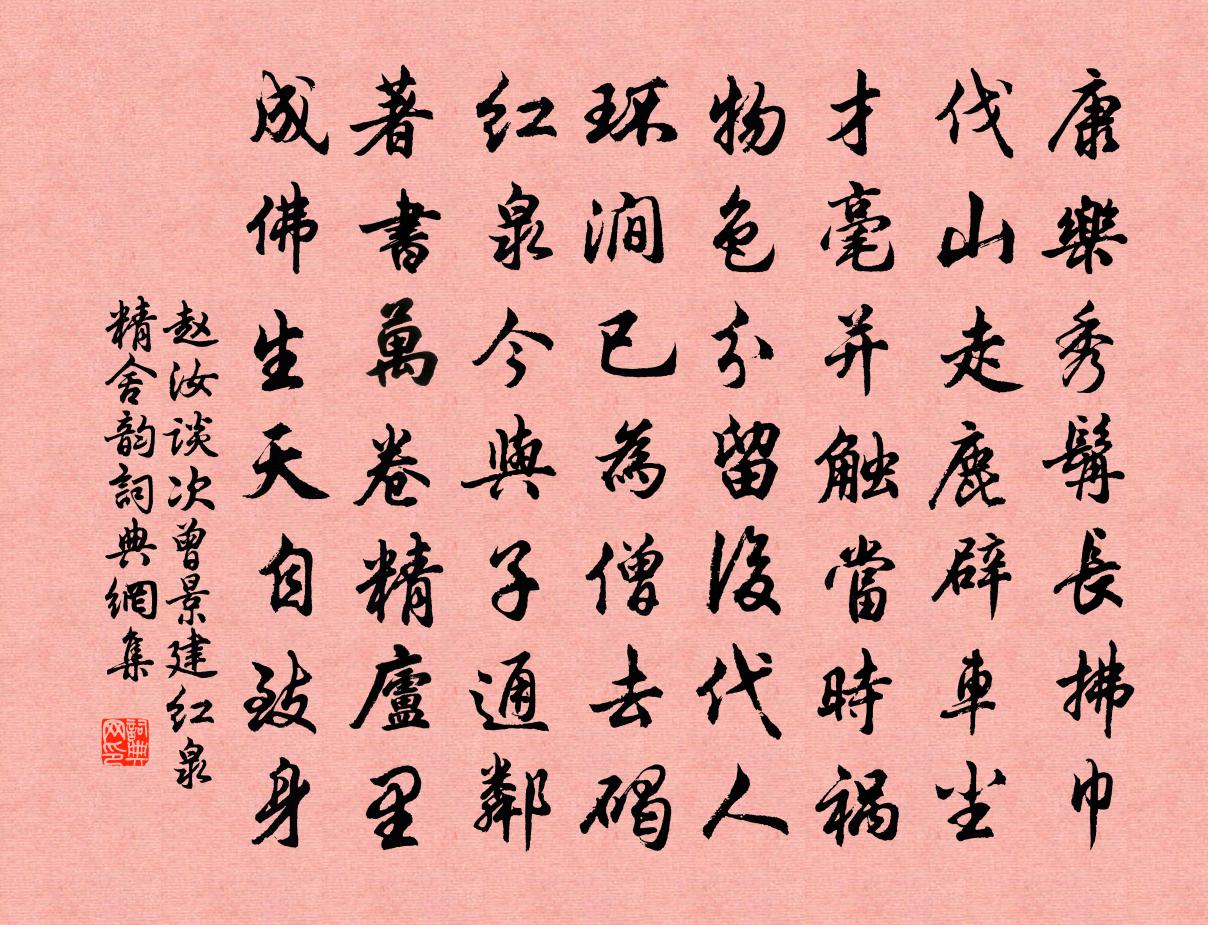 康樂秀髯長拂巾
伐山走鹿辟車尘
才毫并触當時祸
物色分留後代人
环澗已為僧去碣
红泉今與子通鄰
著書萬卷精廬里
成佛生天自致身
赵汝谈次曾景建红泉
精舍韵詞典網集
詞典
网印